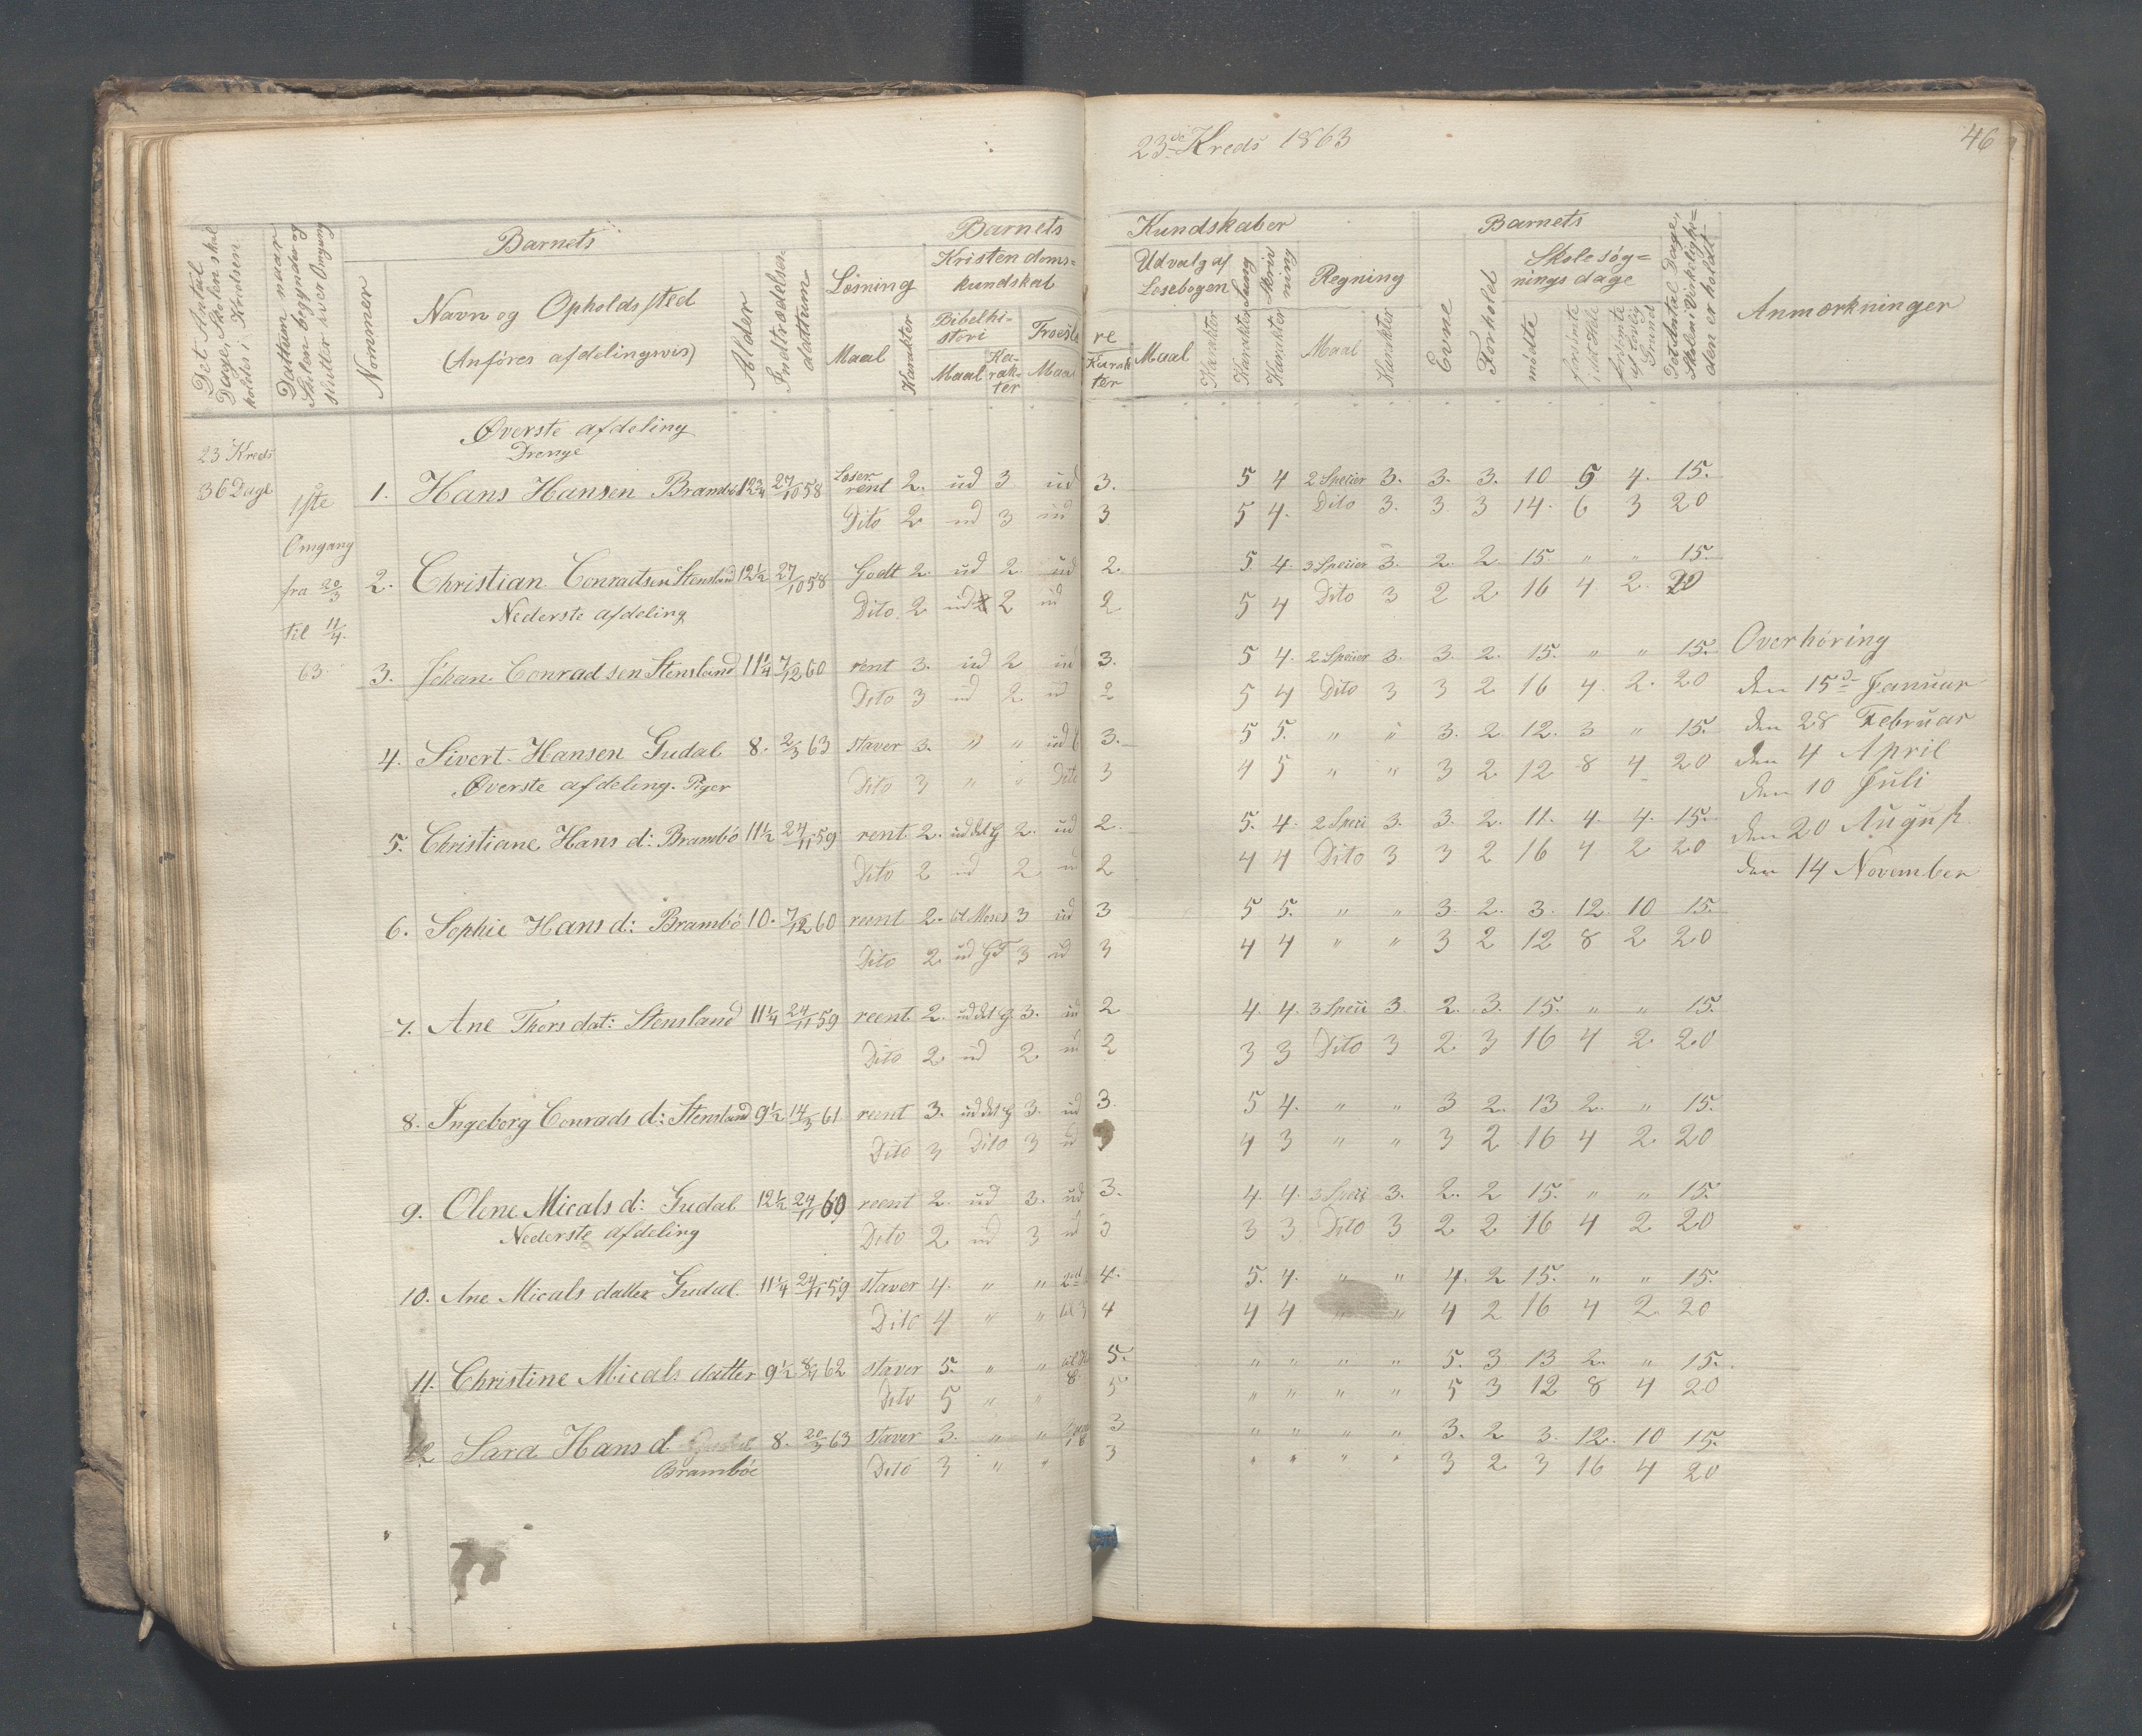 23de Kreds 1863
46
Det Antal Dage, Skolen skal holdes i Kredsen
Dattum naar Skolen begynder og slutter hver Omgang
Barnets
Nommer
Navn og Opholdssted
(Anføres afdelingsvis)
Alder
Indtrædelses dattum
Barnets Kundskaber
Læsning
Maal
Karakter
Kristendoms= kundskab
Bibelhi- stori
Maal
Ka- rak- ter
Troeslæ re
Maal
Karak ter
Udvalg af Læsebogen
Maal
Karakter
Sang
Karakter
Skriv ning
Karakter
Regning
Maal
Karakter
Barnets
Evne
Forhold
Skolesøg= nings dage
mødte
forsømte i det Hele
forsømte af lovlig Grund
Det Antal Dage, Skolen i Virkeligh= den er holdt
Anmærkninger
23 Kreds
36 Dage
1ste
Omgang
fra 20/3
til 11/4
63.
Øverste afdeling
Drenge
1. Hans Hansen Brambö 12 3/4 27/10 58 Læser rent 2. ud 3 ud 3. 5 4 2 Speier 3. 3. 3. 10 5 4. 15.
Dito 2 ud 3 ud 3 5 4. Dito 3. 3 3 14. 6 3 20
2. Christian Conradsen Stensland 12 1/2 27/10 58 Godt 2. ud 2. ud 2. 5. 4. 3 Speier 3. 2. 2. 15 " " 15.
Nederste afdeling
Dito 2 ud 2 ud 2 5 4 Dito 3 2 2 16 4 2. 20
3. Johan Conradsen Stensland 11 1/4 7/12 60 rent 3. ud 2 ud 3. 5 4. 2 Speier 3. 3. 2. 15. " " 15.
Dito 3 ud 2. ud 2 5 4 Dito 3 3 2 16 4 2. 20
4. Sivert Hansen Gudal 8. 2/3 63 staver 3. " " ud 3. 5 5. " " 3. 2 12. 3 " 15.
Øverste afdeling. Piger
Dito 3 " " Dito 3 4 5 " " 3 2 12 8 4 20
5. Christiane Hans d: Brambö 11 1/2 24/11 59 rent 2. ud det g 2. ud 2. 5. 4. 2 Speci 3. 3. 2. 11. 4. 4. 15.
Dito 2 ud 2 ud 2 4 4 Dito 3 3 2 16 4 2 20
6. Sophie Hans d: Brambö 10. 7/12 60 reent 2. til Moses 3 ud 3 5 5. " " 3. 2. 3. 12. 10 15.
Dito 2 ud GT 3 ud 3 4 4 " " 3 2 12 8 2 20
7. Ane Thors dat: Stensland 11 1/4 24/11 59 reent 2. ud det g 3. ud 2 4. 4. 3 Speci 3 2. 3. 15. " " 15.
Dito 2 ud 2 ud 2 3 3 Dito 3 2. 3 16 4 2. 20
8. Ingeborg Conrads d: Stensland 9 1/2 14/3 61 reent 3. ud det g 3. ud 3. 5 4. " " 3 2. 13 2. " 15.
Dito 3 Dito 3 ud 4 3 " " 3 2 16 4 2. 20
9. Olene Micals d: Gudal 12 1/2 24/11 60 reent 2. ud 3. ud 3. 4. 4. 3 Speci 3. 2. 2 15. " " 15.
Nederste afdeling
Dito 2 ud 3 ud 3 3 3 Dito 3 2 2 16 4 2 20
10. Ane Micals datter Gudal. 11 1/4 24/11 59 staver 4. " " 4. 5. 4. " " 4. 2 15. " " 15.
Dito 4 " " 4 4 4 " " 4 2 16 4 2. 20
11. Christine Micals datter 9 1/2 8/4 62 staver 5. " " 5. " " " " 5. 3 13 2. " 15.
Dito 5 " " 5 " " " " 5 3 12 8 4 20
12. Sara Hans d 8. 20/3 63 staver 3. " " 3 " " " " 3. 2 3. 12. 10 15.
Brambö
Dito 3 " " 3 " " " " 3 2 3 16 4 20
Overhøring
den 15de Januar
den 28 Februar
den 4 April
den 10 Juli
den 20 August
den 14 November